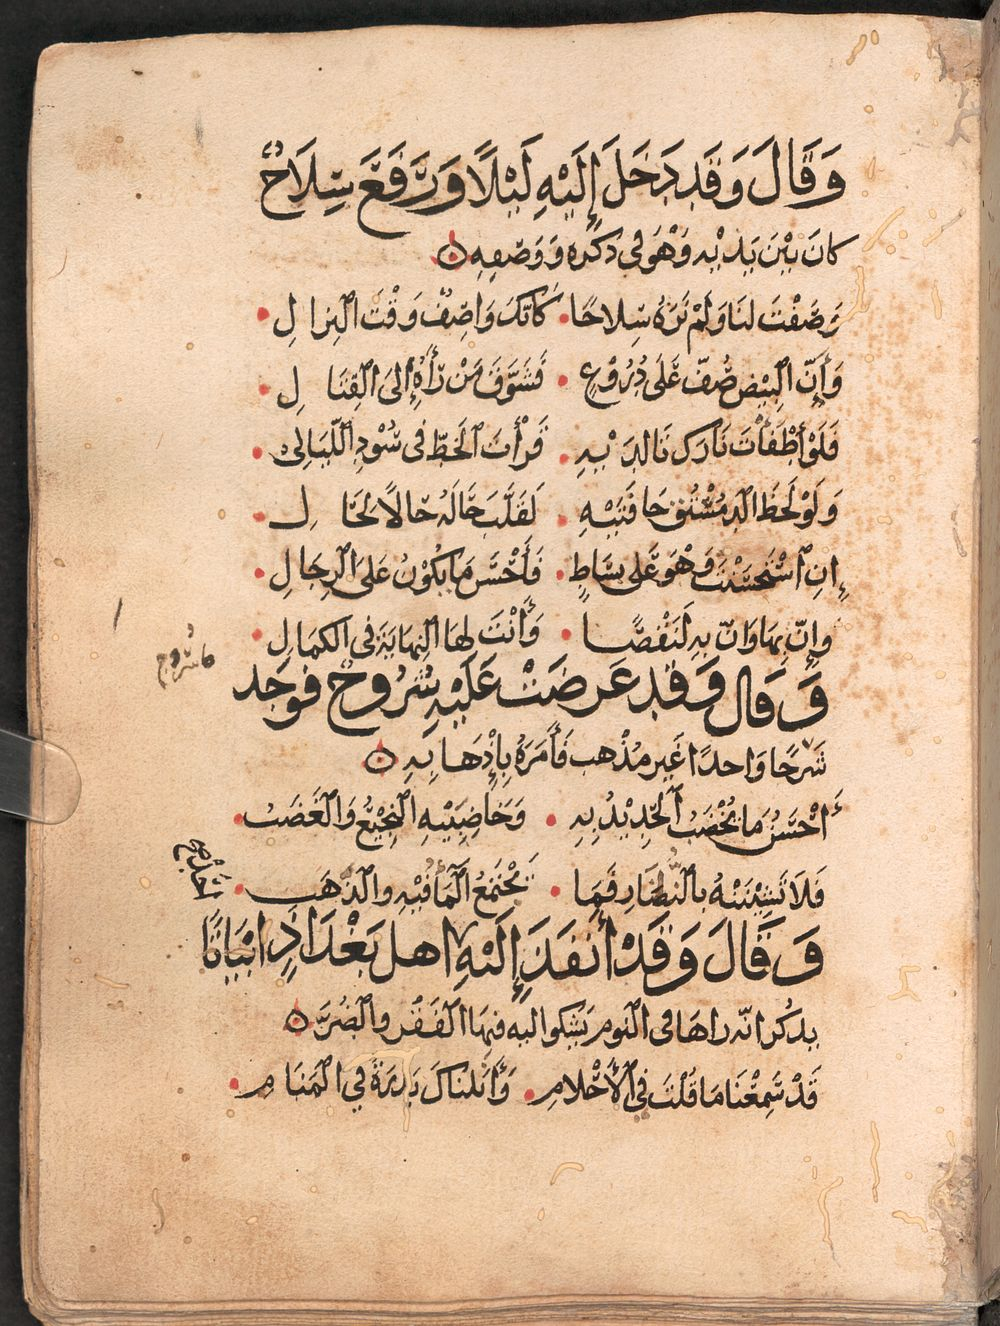 وَقَالَ وَقَد دَخَلَ إِلَيْهِ لَيْلًا وَرَفَعَ سِلَاحٌ
كانَ بَيْنَ يَدَيْهِ وَهْوَ في ذكره وَوَصْفِهِ
وَصَفْتَ لنَا وَلَمْ نَرَهُ سِلاحًا كَأنّكَ وَاصِفٌ وَقْتَ النِزالِ
وَأَنّ البِيْضَ صُفّ عَلَى دُرُوْعٍ فَشَوَّقَ مَنْ رَأَهُ إِلىَ القِتَالِ
فَلَوْ أَطْفَأْتَ نَارَكَ تَا لدَيْهِ قَرأْتَ الخَطَّ فى سُوْدِ اللّيَالى
وَلَوْ لَحَظَ الدُمُسْتُقُ حَافَتَيْهِ لَقَلَّبَ رَأيَهُ حَالًا لحَالِ
إِنِ اسْتَحْسَنْتَ وَهْوَ عَلى بسَاطٍ فَأَحْسَنُ مَا يَكُوْنُ عَلَى الرِجَالِ
وإِنّ بِهَا وَانّ بِهِ لَنَقْصًا وَأَنْتَ لهَا النِهَايَةُ فى الكمَالِ
وَقَالَ وَقَد عَرَضَتْ عَلَيْهِ سُرُوحٌ فوَجَد
سَرْجًا وَاحدًا غَيرَ مُذْهب فَأَمَرَهُ بِإِذْهَابِهِ
أحْسَنُ مَا يُخْضَبُ الحَدِيْدُ بِهِ وَخَاضِبَيْهِ النَجِيْعُ وَالغَضَبُ
فَلَا تَشِيْنَنْهُ بالنُّضَارِ فَمَا يَجْتَمِعُ المَآ فيْهِ والذَهَبُ
وَقَالَ وَقَدْ أنفَذَ إِلَيْهِ اهل بَغْدَادٍ ابْيَاتًا
يذكرُ انّه راهَا فى النَومِ يَشكوا اليه فيهَا الفَقْر والضُرَّ
قَدْ سَمِعْنَا مَا قُلْتَ فِي الأَحْلامِ وَأَنَلنَاكَ بَدْرَةً فِي المَنَامِ